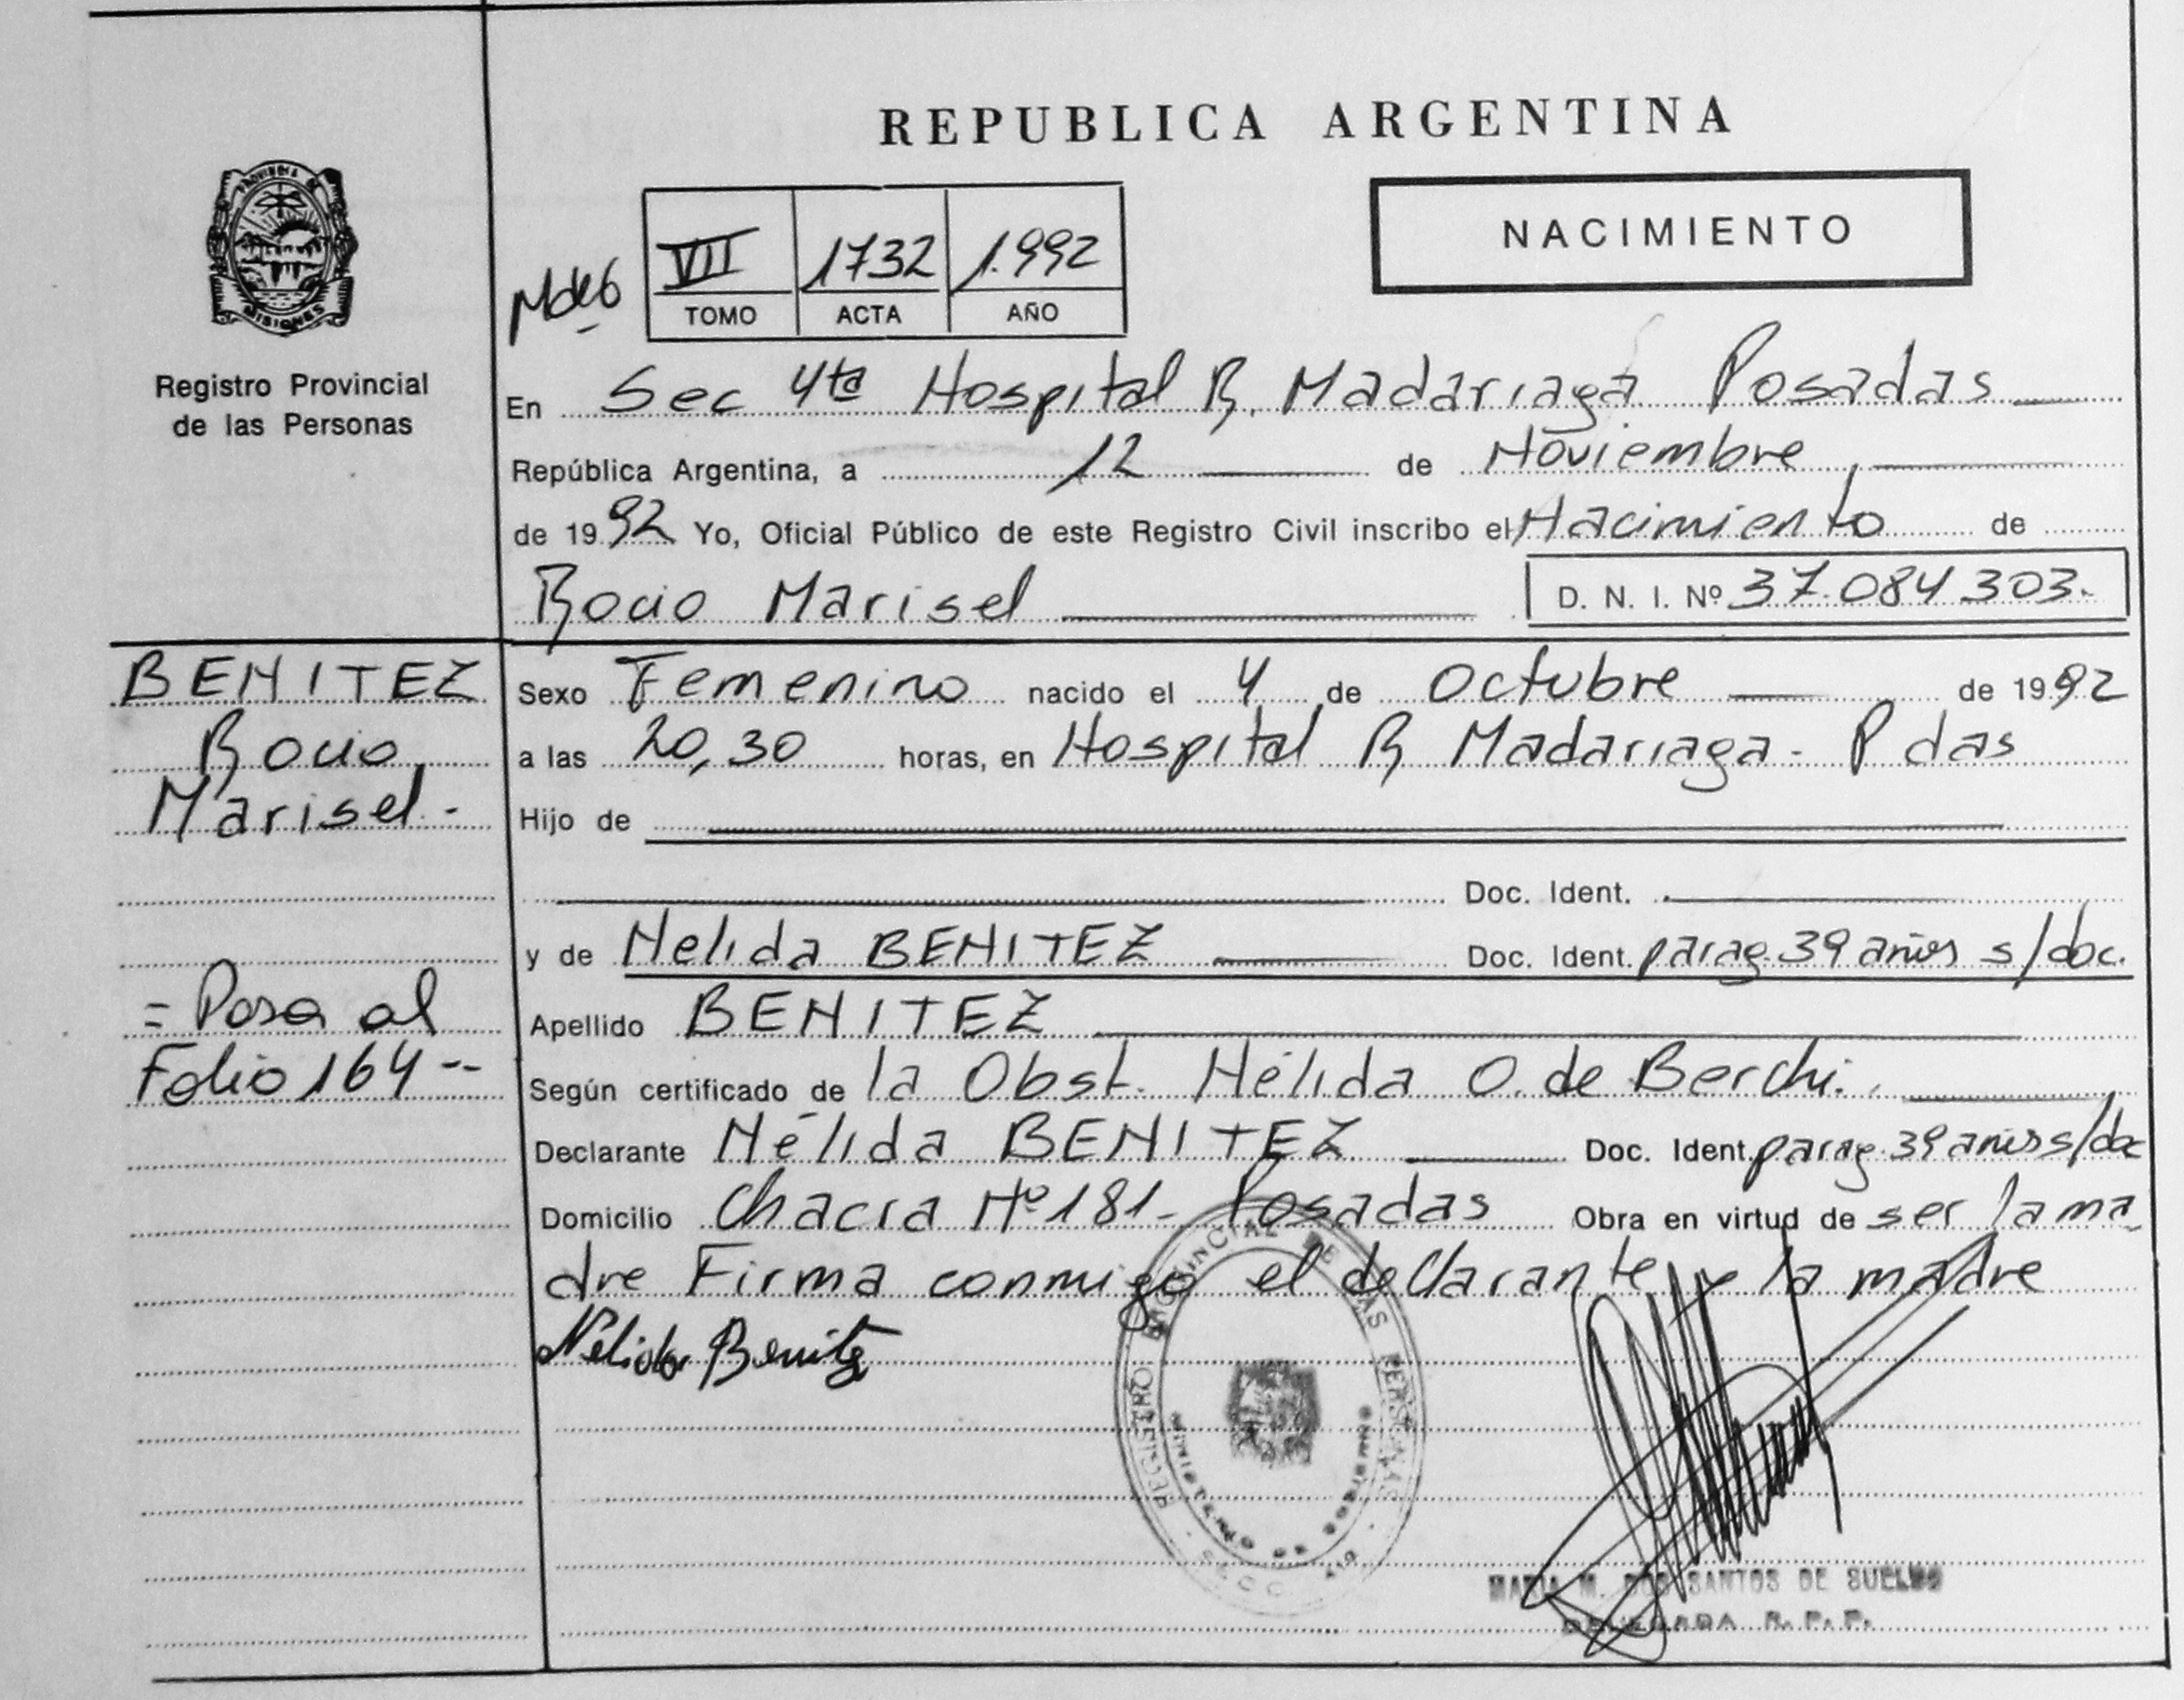 REPUBLICA ARGENTINA
PROVINCIA DE
MISIONES
Registro Provincial
de las Personas
NACIMIENTO
VII 1732 1.992
TOMO ACTA AÑO
En Sec 4ta Hospital R. Madariaga Posadas
República Argentina, a 12 de Noviembre
de 1992 Yo, Oficial Público de este Registro Civil inscribo el Nacimiento de
Rocio Marisel D. N. I. Nº 37.084.303.-
BENITEZ
Rocio
Marisel.-
= Pasa al
Folio 164 --
Sexo Femenino nacido el 4 de Octubre de 1992
a las 20,30 horas, en Hospital R Madariaga - P das
Hijo de
Doc. Ident.
y de Nelida BENITEZ Doc. Ident. parag. 39 años s/doc.
Apellido BENITEZ
Según certificado de la Obst. Nélida O. de Berchi.
Declarante Nélida BENITEZ Doc. Ident. parag. 39 años s/doc
Domicilio Chacra Nº 181- Posadas Obra en virtud de ser la ma
dre Firma conmigo el declarante y la madre
Nélida Benitez
REGISTRO PROVINCIAL DE LAS PERSONAS
MINISTERIO DE GOBIERNO
MARIA M. DOS SANTOS DE SUELDO
DELEGADA R. P. P.